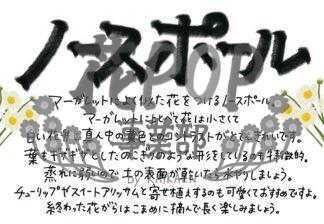 ノースポール
花POP
マーガレットによく似た花をつけるノースポール。
マーガレットにくらべて花は小さくて
白い花弁に真ん中の黄色とのコントラストがとてもきれいです。
葉もギザギザとしたのこぎりのような形をしているのも特徴的。
蒸れに弱いので土の表面が乾いたら水やりしましょう。
チューリップやスイートアリッサムと寄せ植えするのも可愛くておすすめですよ。
終わった花がらはこまめに摘んで長く楽しみましょう。